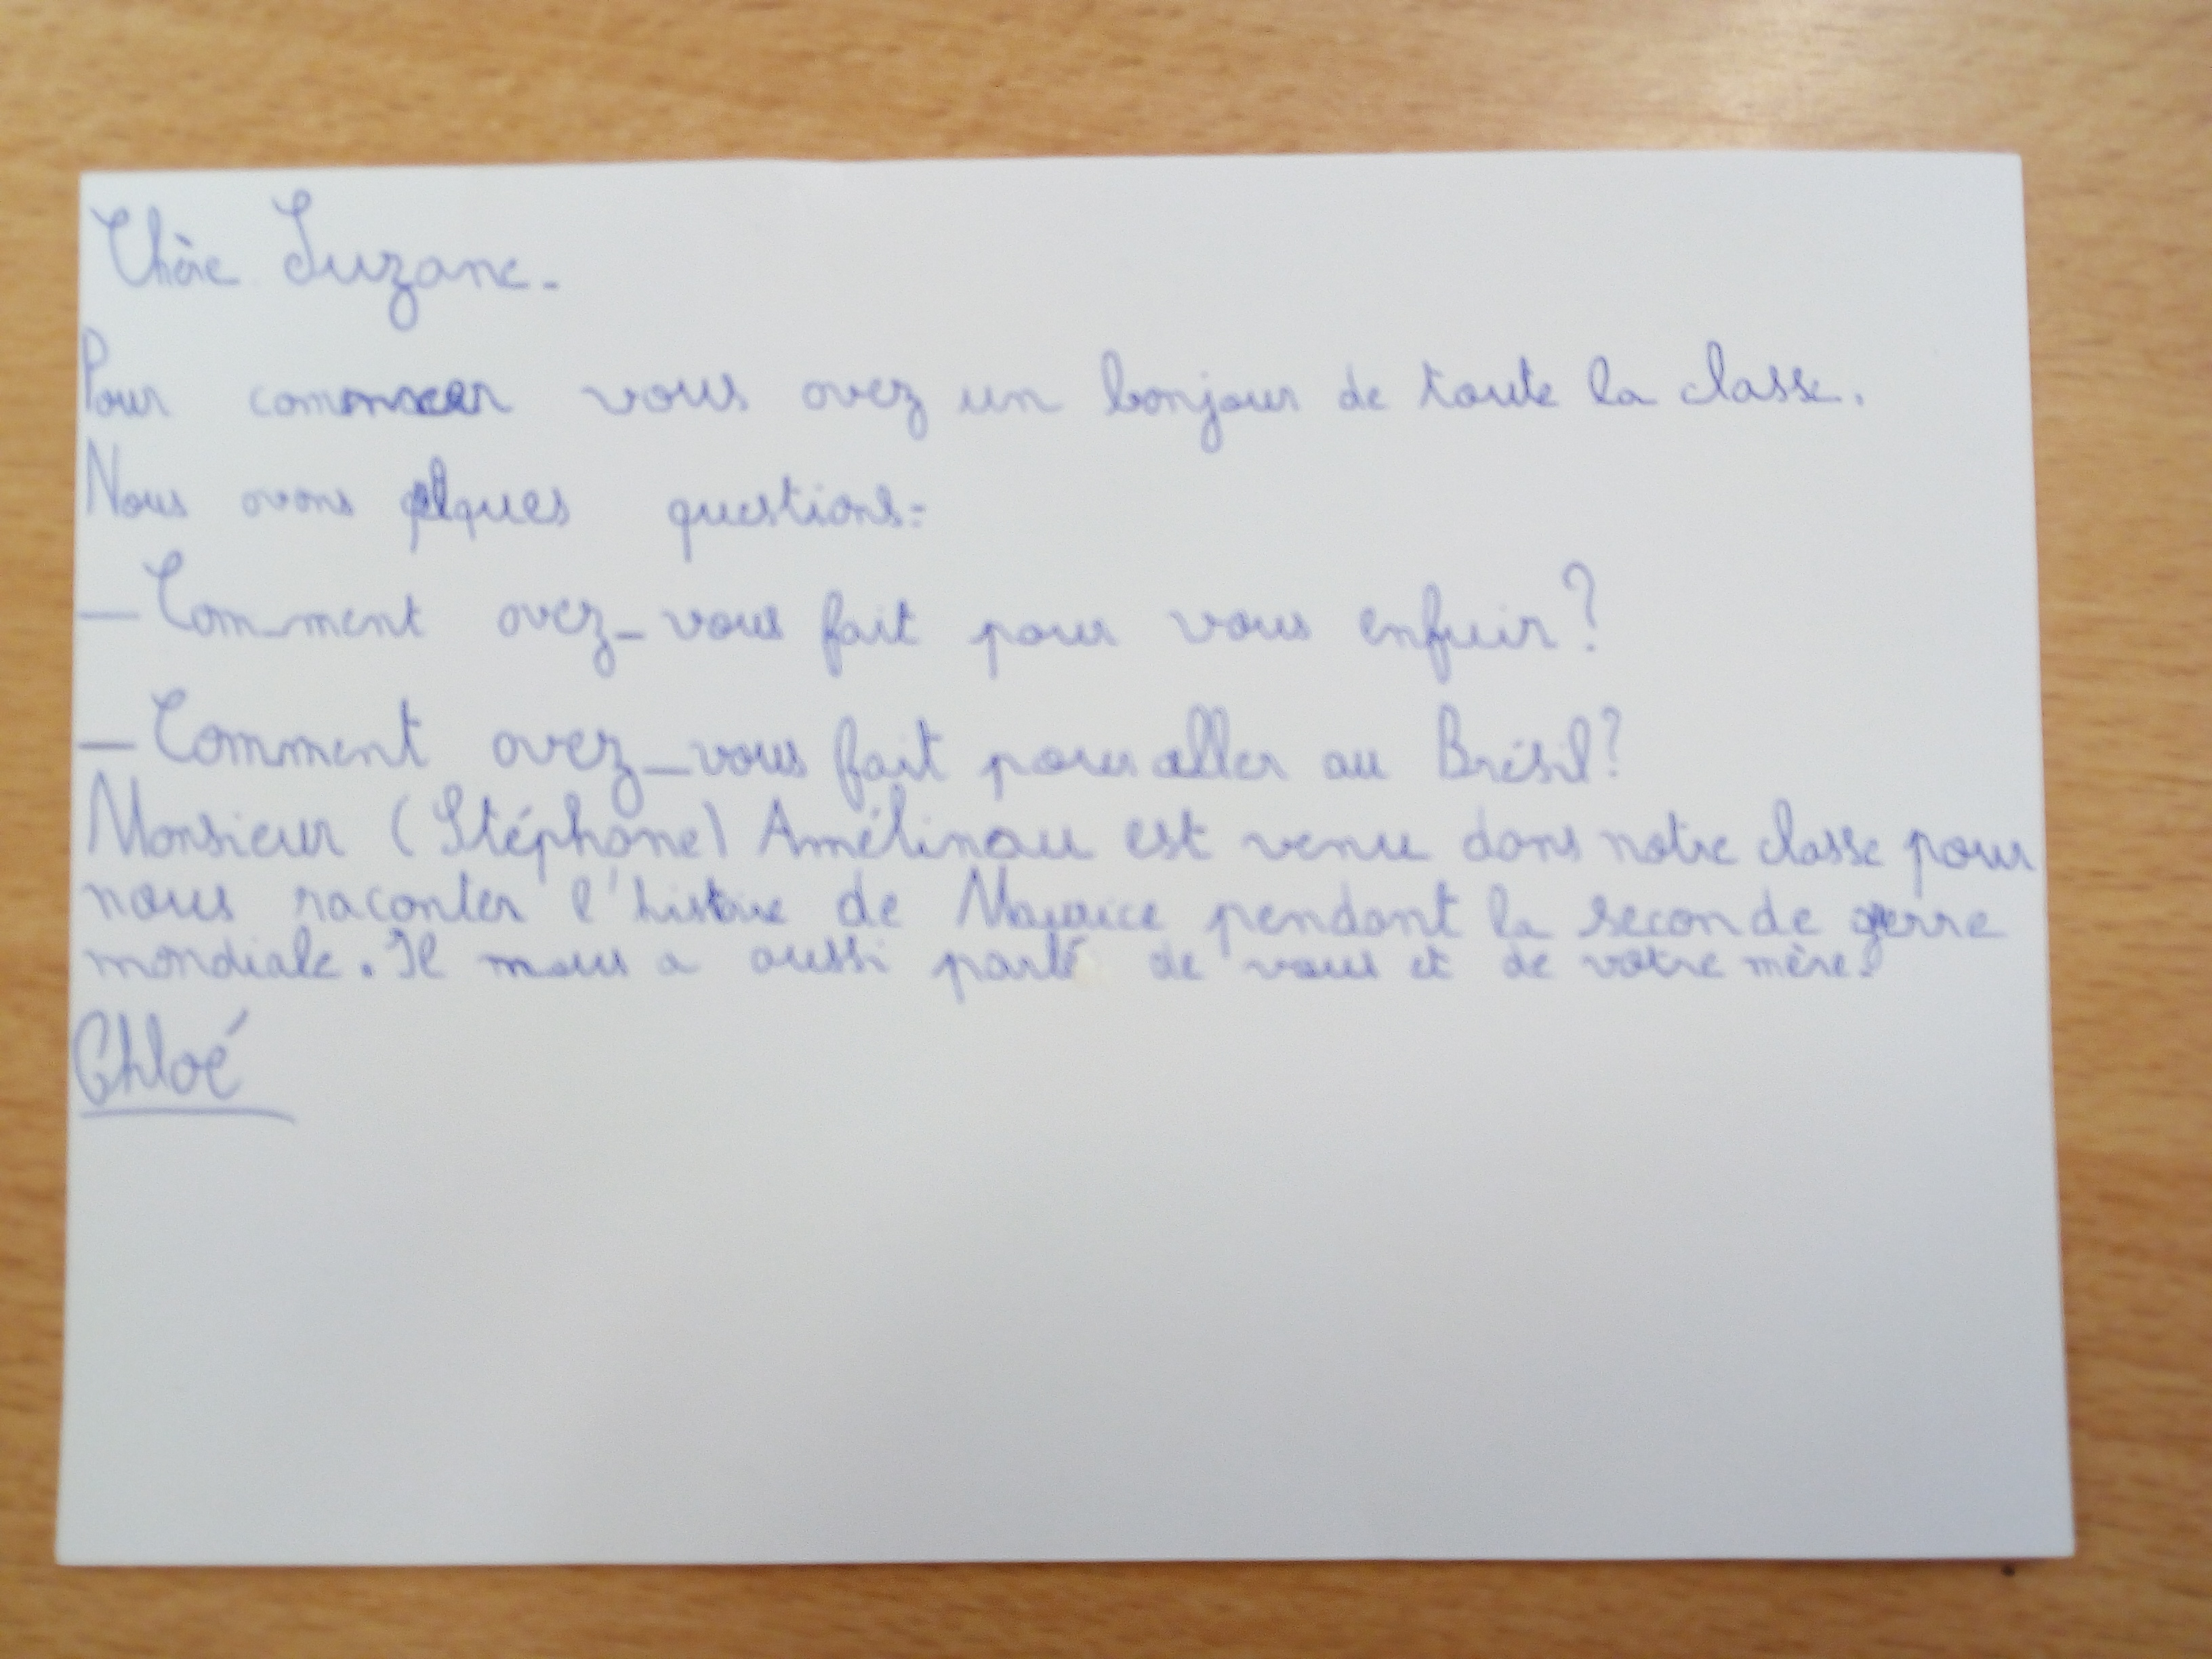 Chère Suzane.
Pour commencer vous avez un bonjour de toute la classe.
Nous avons qelques questions:
– Comment avez-vous fait pour vous enfuir ?
– Comment avez-vous fait pour aller au Brésil ?
Monsieur (Stéphane) Amélinau est venu dans notre classe pour
nous raconter l'histoire de Maurice pendant la seconde gerre
mondiale. Il nous a aussi parlé de vous et de votre mère.
Chloé